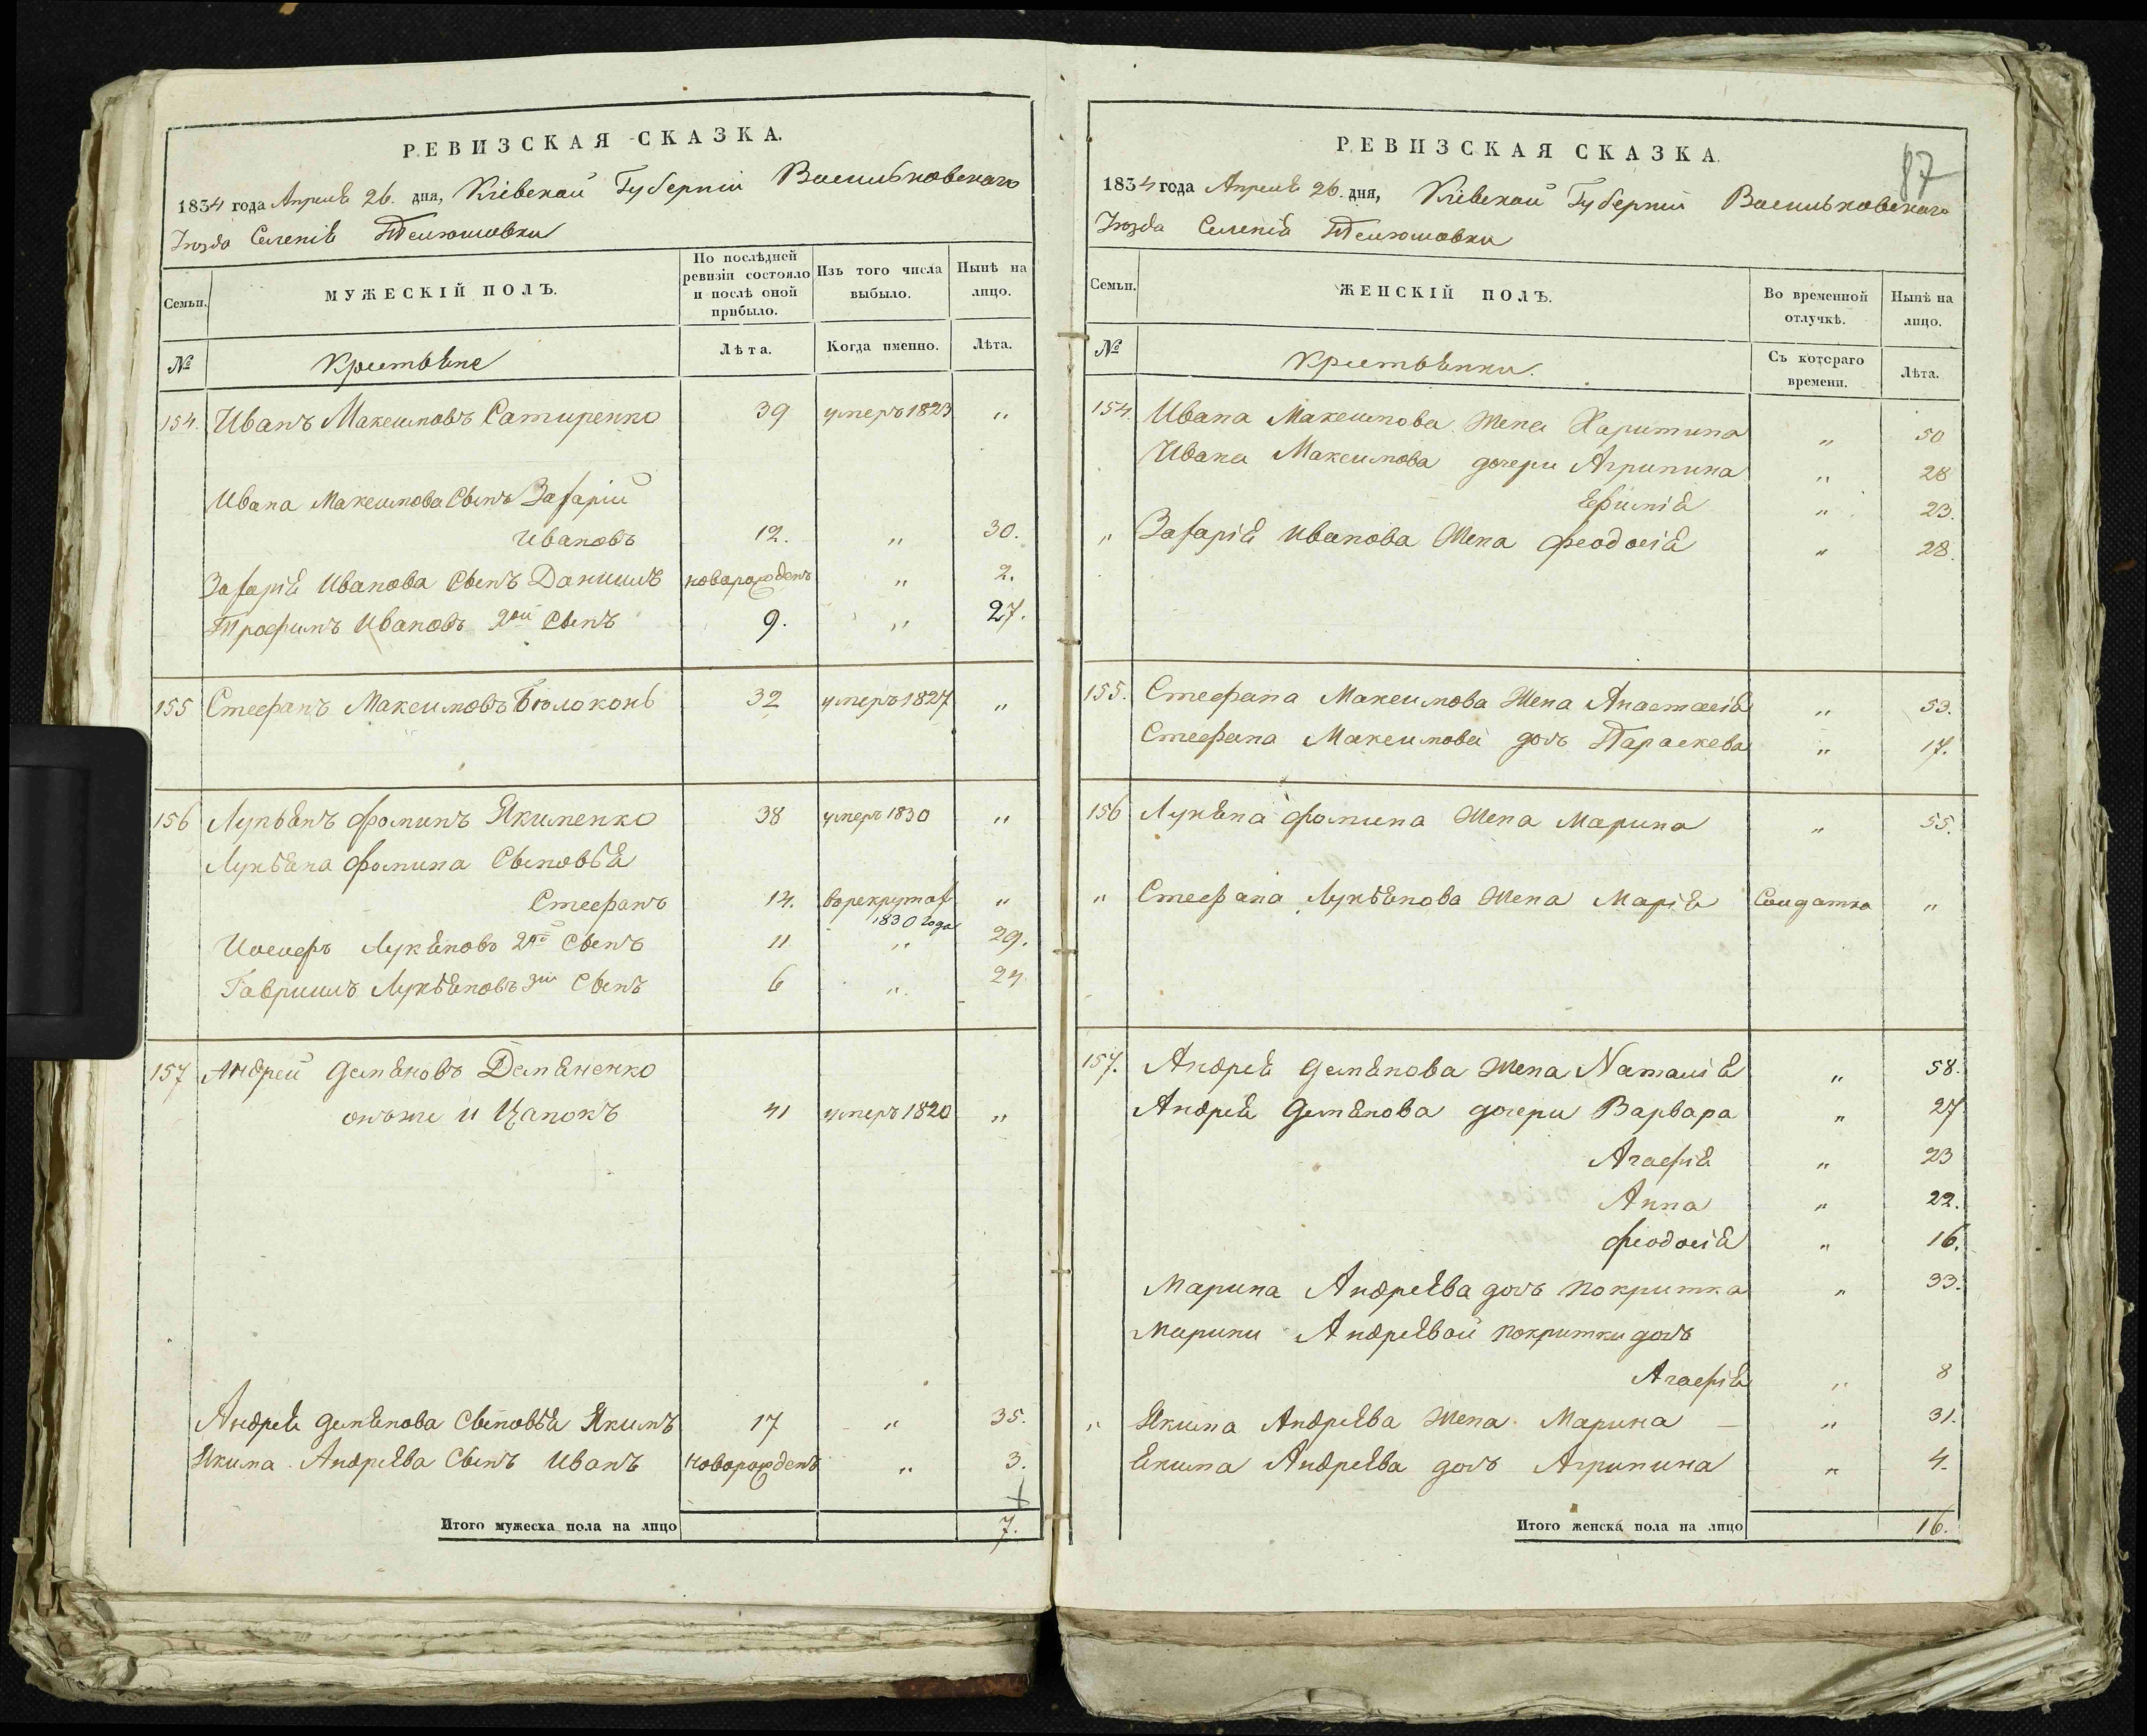 РЕВИЗСКАЯ СКАЗКА.
1834 года Апреля 26. дня, Кіевской Губерніи Васильковскаго
Уѣзда Селенія Телюшовки
Семьи.
МУЖЕСКІЙ ПОЛЪ.
По послѣдней ревизіи состояло и послѣ оной прибыло.
Изъ того числа выбыло.
Нынѣ на лицо.
№
Крестьяне
Лѣта.
Когда именно.
Лѣта.
154. Иванъ Максимовъ Сатиренко 39 умеръ 1823 "
Ивана Максимова Сынъ Захарій
Ивановъ 12. " 30.
Захарія Иванова Сынъ Даниилъ новарожденъ " 2.
Трофимъ Ивановъ 2ой Сынъ 9. " 27.
155 Стефанъ Максимовъ Бѣлоконь 32 умеръ 1827 "
156 Лукьянъ Фоминъ Якименко 38 умеръ 1830 "
Лукьяна Фомина Сыновья
Стефанъ 14. "
1830 года
Иосифъ Лукяновъ 2й Сынъ 11 " 29.
Гавриилъ Лукьяновъ 3ій Сынъ 6 " 24
157 Андрей Демяновъ Демяненко
онъже и Цапокъ 41 умеръ 1820 "
Андрея Демянова Сыновья Якимъ 17 " 35.
Якима Андреева Сынъ Иванъ новорожденъ " 3.
Итого мужеска пола на лицо 7.
87
РЕВИЗСКАЯ СКАЗКА.
1834 года Апреля 26. дня, Кіевской Губерніи Васильковскаго
Уѣзда Селенія Телюшовки
Семьи.
ЖЕНСКІЙ ПОЛЪ.
Во временной отлучкѣ.
Нынѣ на лицо.
№
Крестьянки.
Съ котораго времени.
Лѣта.
154. Ивана Максимова Жена Харитина " 50
Ивана Максимова дочери Агрипина " 28
Ефимія " 23.
" Захарія Иванова Жена Феодосія " 28.
155. Стефана Максимова Жена Анастасія " 53.
Стефана Максимова дочь Параскева " 17.
156 Лукяна Фомина Жена Марина " 55.
" Стефана Лукьянова Жена Марія Солдатка "
157. Андрея Демянова Жена Наталія " 58.
Андрея Демянова дочери Варвара " 27
Агафія " 23
Анна " 22.
Феодосія " 16.
Марина Андреева дочь покритка " 33.
Марини Андреевой покритки дочь
Агафія " 8
" Якима Андреева Жена Марина " 31.
Якима Андреева дочь Агрипина " 4.
Итого женска пола на лицо 16.